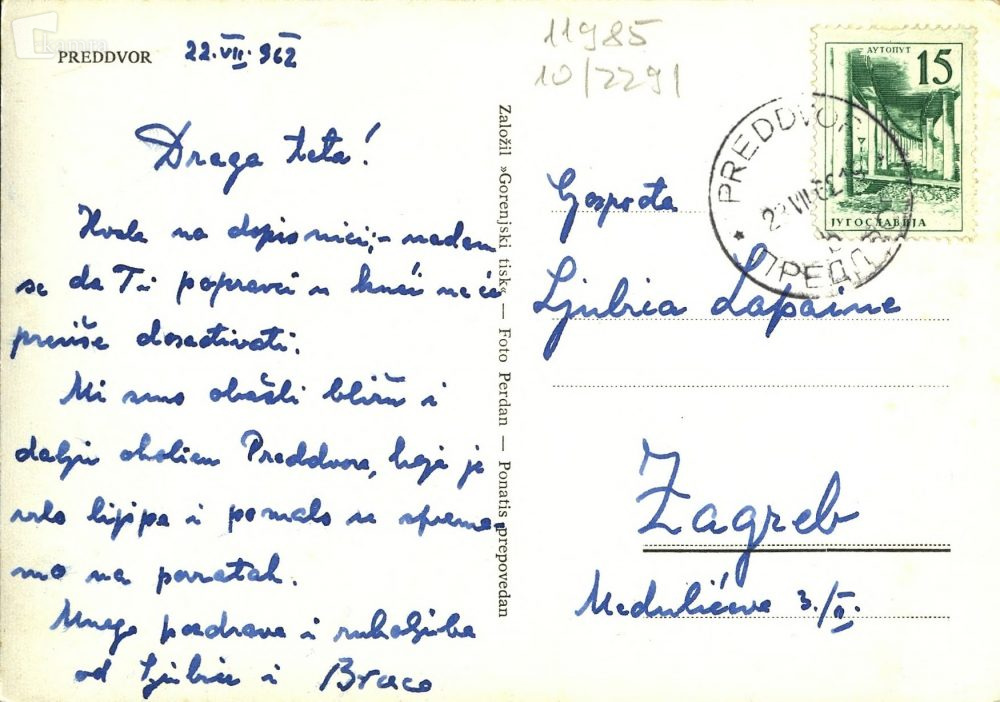 kamra
PREDDVOR 22.VII.962
Draga teta!
Hvala na dopisnici,- nadam
se da Ti popravci u kući neće
previše dosađivati.
Mi smo obašli bližu i
dalju okolicu Preddvora, koja je
vrlo lijepa i pomalo se sprema
mo na povratak.
Mnogo pozdrava i rukoljuba
od Ljubice i Brace
Založil »Gorenjski tisk« — Foto Perdan — Ponatis prepovedan
11985
10/2291
АУТОПУТ
15
ЈУГОСЛАВИЈА
PREDDVOR
22.VII.62.19
ПРЕДДВОР
Gospođa
Ljubica Lapaine
Zagreb
Medulićeva 3./II.